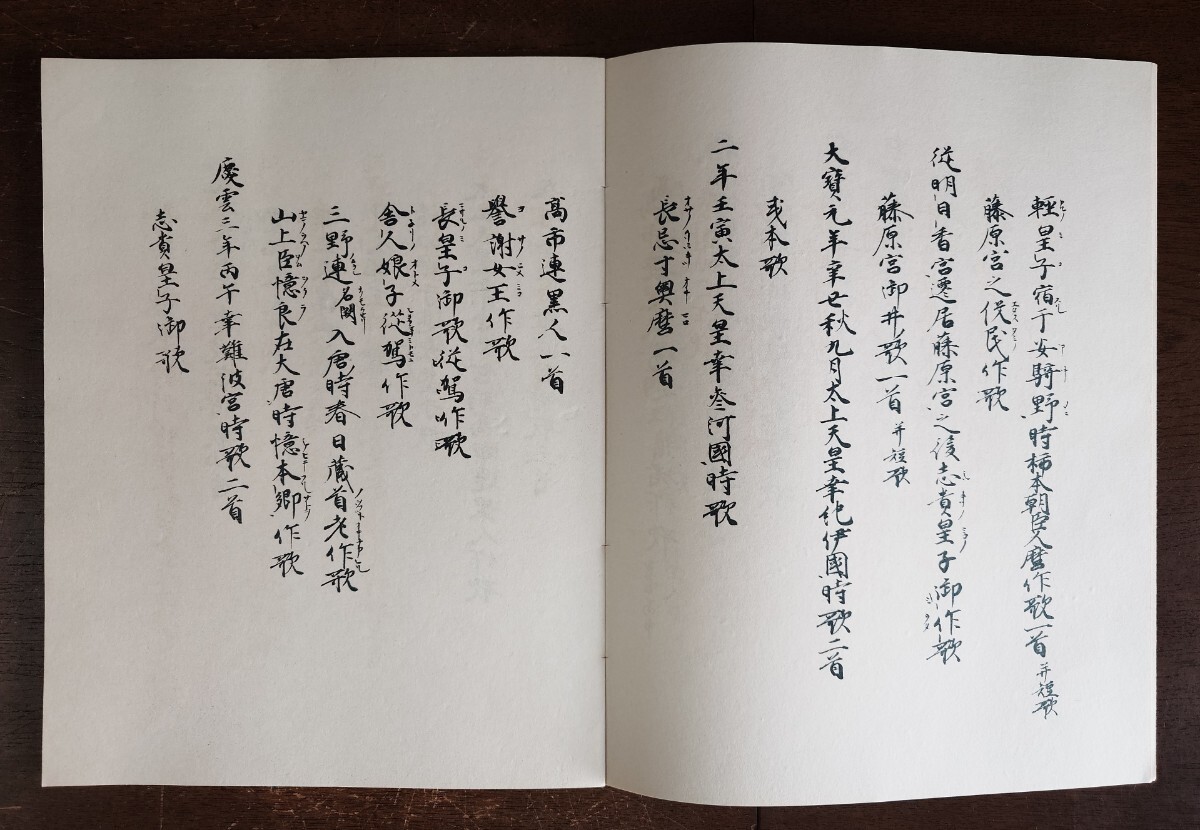 軽皇子宿于安騎野時柿本朝臣人麿作歌一首并短歌
藤原宮之役民作歌
従明日香宮遷居藤原宮之後志貴皇子御作歌
藤原宮御井歌一首并短歌
大寶元年辛丑秋九月太上天皇幸紀伊國時歌二首
或本歌
二年壬寅太上天皇幸参河國時歌
長忌寸興麿一首
高市連黒人一首
譽謝女王作歌
長皇子御歌従駕作歌
舎人娘子従駕作歌
三野連名闕入唐時春日蔵首老作歌
山上臣憶良在大唐時憶本郷作歌
慶雲三年丙午幸難波宮時歌二首
志貴皇子御歌